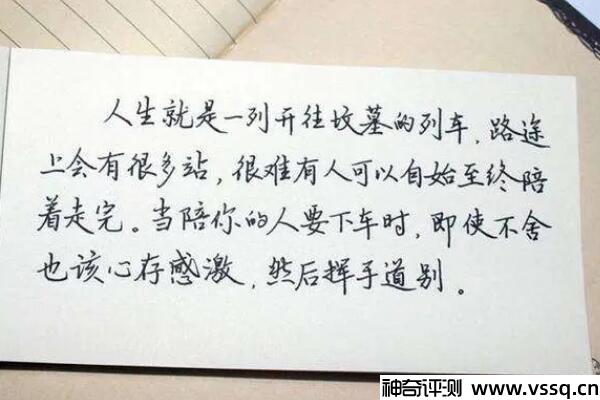 人生就是一列开往坟墓的列车，路途
上会有很多站，很难有人可以自始至终陪
着走完。当陪你的人要下车时，即使不舍
也该心存感激，然后挥手道别。
神奇评测 www.vssq.cn